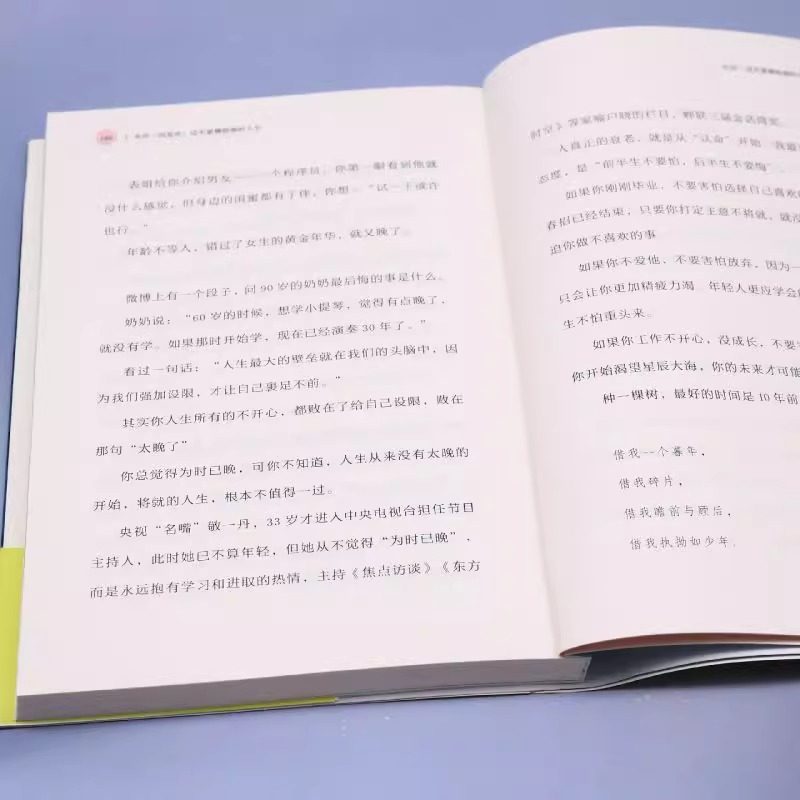 表姐给你介绍男友———个程序员，你第一眼看到他就
没什么感觉，但身边的闺蜜都有了伴，你想：“试一下或许
也行。”
年龄不等人，错过了女生的黄金年华，就又晚了。
微博上有一个段子，问90岁的奶奶最后悔的事是什么。
奶奶说：“60岁的时候，想学小提琴，觉得有点晚了，
就没有学。如果那时开始学，现在已经演奏30年了。”
看过一句话：“人生最大的壁垒就在我们的头脑中，因
为我们强加设限，才让自己裹足不前。”
其实你人生所有的不开心，都败在了给自己设限，败在
那句“太晚了”
你总觉得为时已晚，可你不知道，人生从来没有太晚的
开始，将就的人生，根本不值得一过。
央视“名嘴”敬一丹，33岁才进入中央电视台担任节目
主持人，此时她已不算年轻，但她从不觉得“为时已晚”，
而是永远抱有学习和进取的热情，主持《焦点访谈》《东方
时空》等家喻户晓的栏目，蝉联三届金话筒奖。
人真正的衰老，就是从“认命”开始
态度，是“前半生不要怕，后半生不要悔”。
如果你刚刚毕业，不要害怕选择自己喜欢
春招已经结束，只要你打定主意不将就，就没
迫你做不喜欢的事
如果你不爱他，不要害怕放弃，因为一
只会让你更加精疲力竭。年轻人更应学会
生不怕重头来。
如果你工作不开心，没成长，不要
你开始渴望星辰大海，你的未来才可能
种一棵树，最好的时间是10年前
借我一个暮年，
借我碎片，
借我瞻前与顾后，
借我执拗如少年。